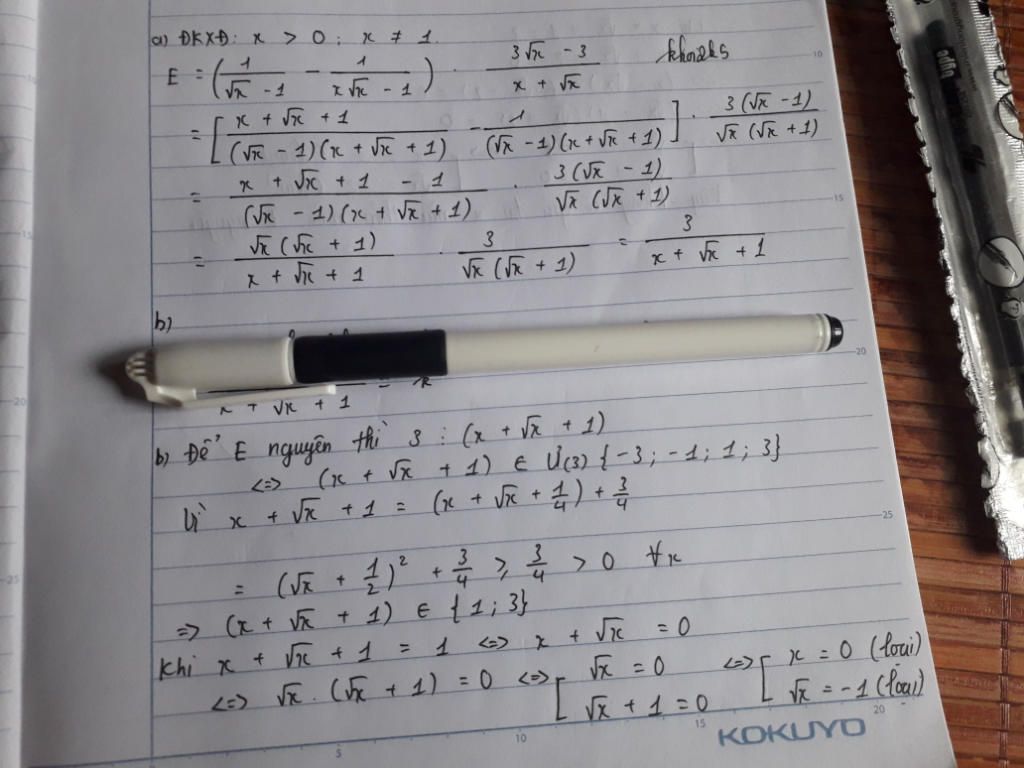 a) ĐKXĐ: x > 0 ; x ≠ 1.
E = (1/(√x - 1) - 1/(x√x - 1)) . (3√x - 3)/(x + √x)
= [(x + √x + 1)/((√x - 1)(x + √x + 1)) - 1/((√x - 1)(x + √x + 1))] . 3(√x - 1)/(√x (√x + 1))
= (x + √x + 1 - 1)/((√x - 1)(x + √x + 1)) . 3(√x - 1)/(√x (√x + 1))
= √x (√x + 1)/(x + √x + 1) . 3/(√x (√x + 1)) = 3/(x + √x + 1)
b)
x + √x + 1 =
b) Để E nguyên thì 3 : (x + √x + 1)
<=> (x + √x + 1) ∈ Ư(3) {-3 ; -1 ; 1 ; 3}
Vì x + √x + 1 = (x + √x + 1/4) + 3/4
= (√x + 1/2)² + 3/4 ≥ 3/4 > 0 ∀x
=> (x + √x + 1) ∈ {1 ; 3}
Khi x + √x + 1 = 1 <=> x + √x = 0
<=> √x . (√x + 1) = 0 <=> [ √x = 0 <=> [ x = 0 (loại)
√x + 1 = 0 √x = -1 (loại)
KOKUYO